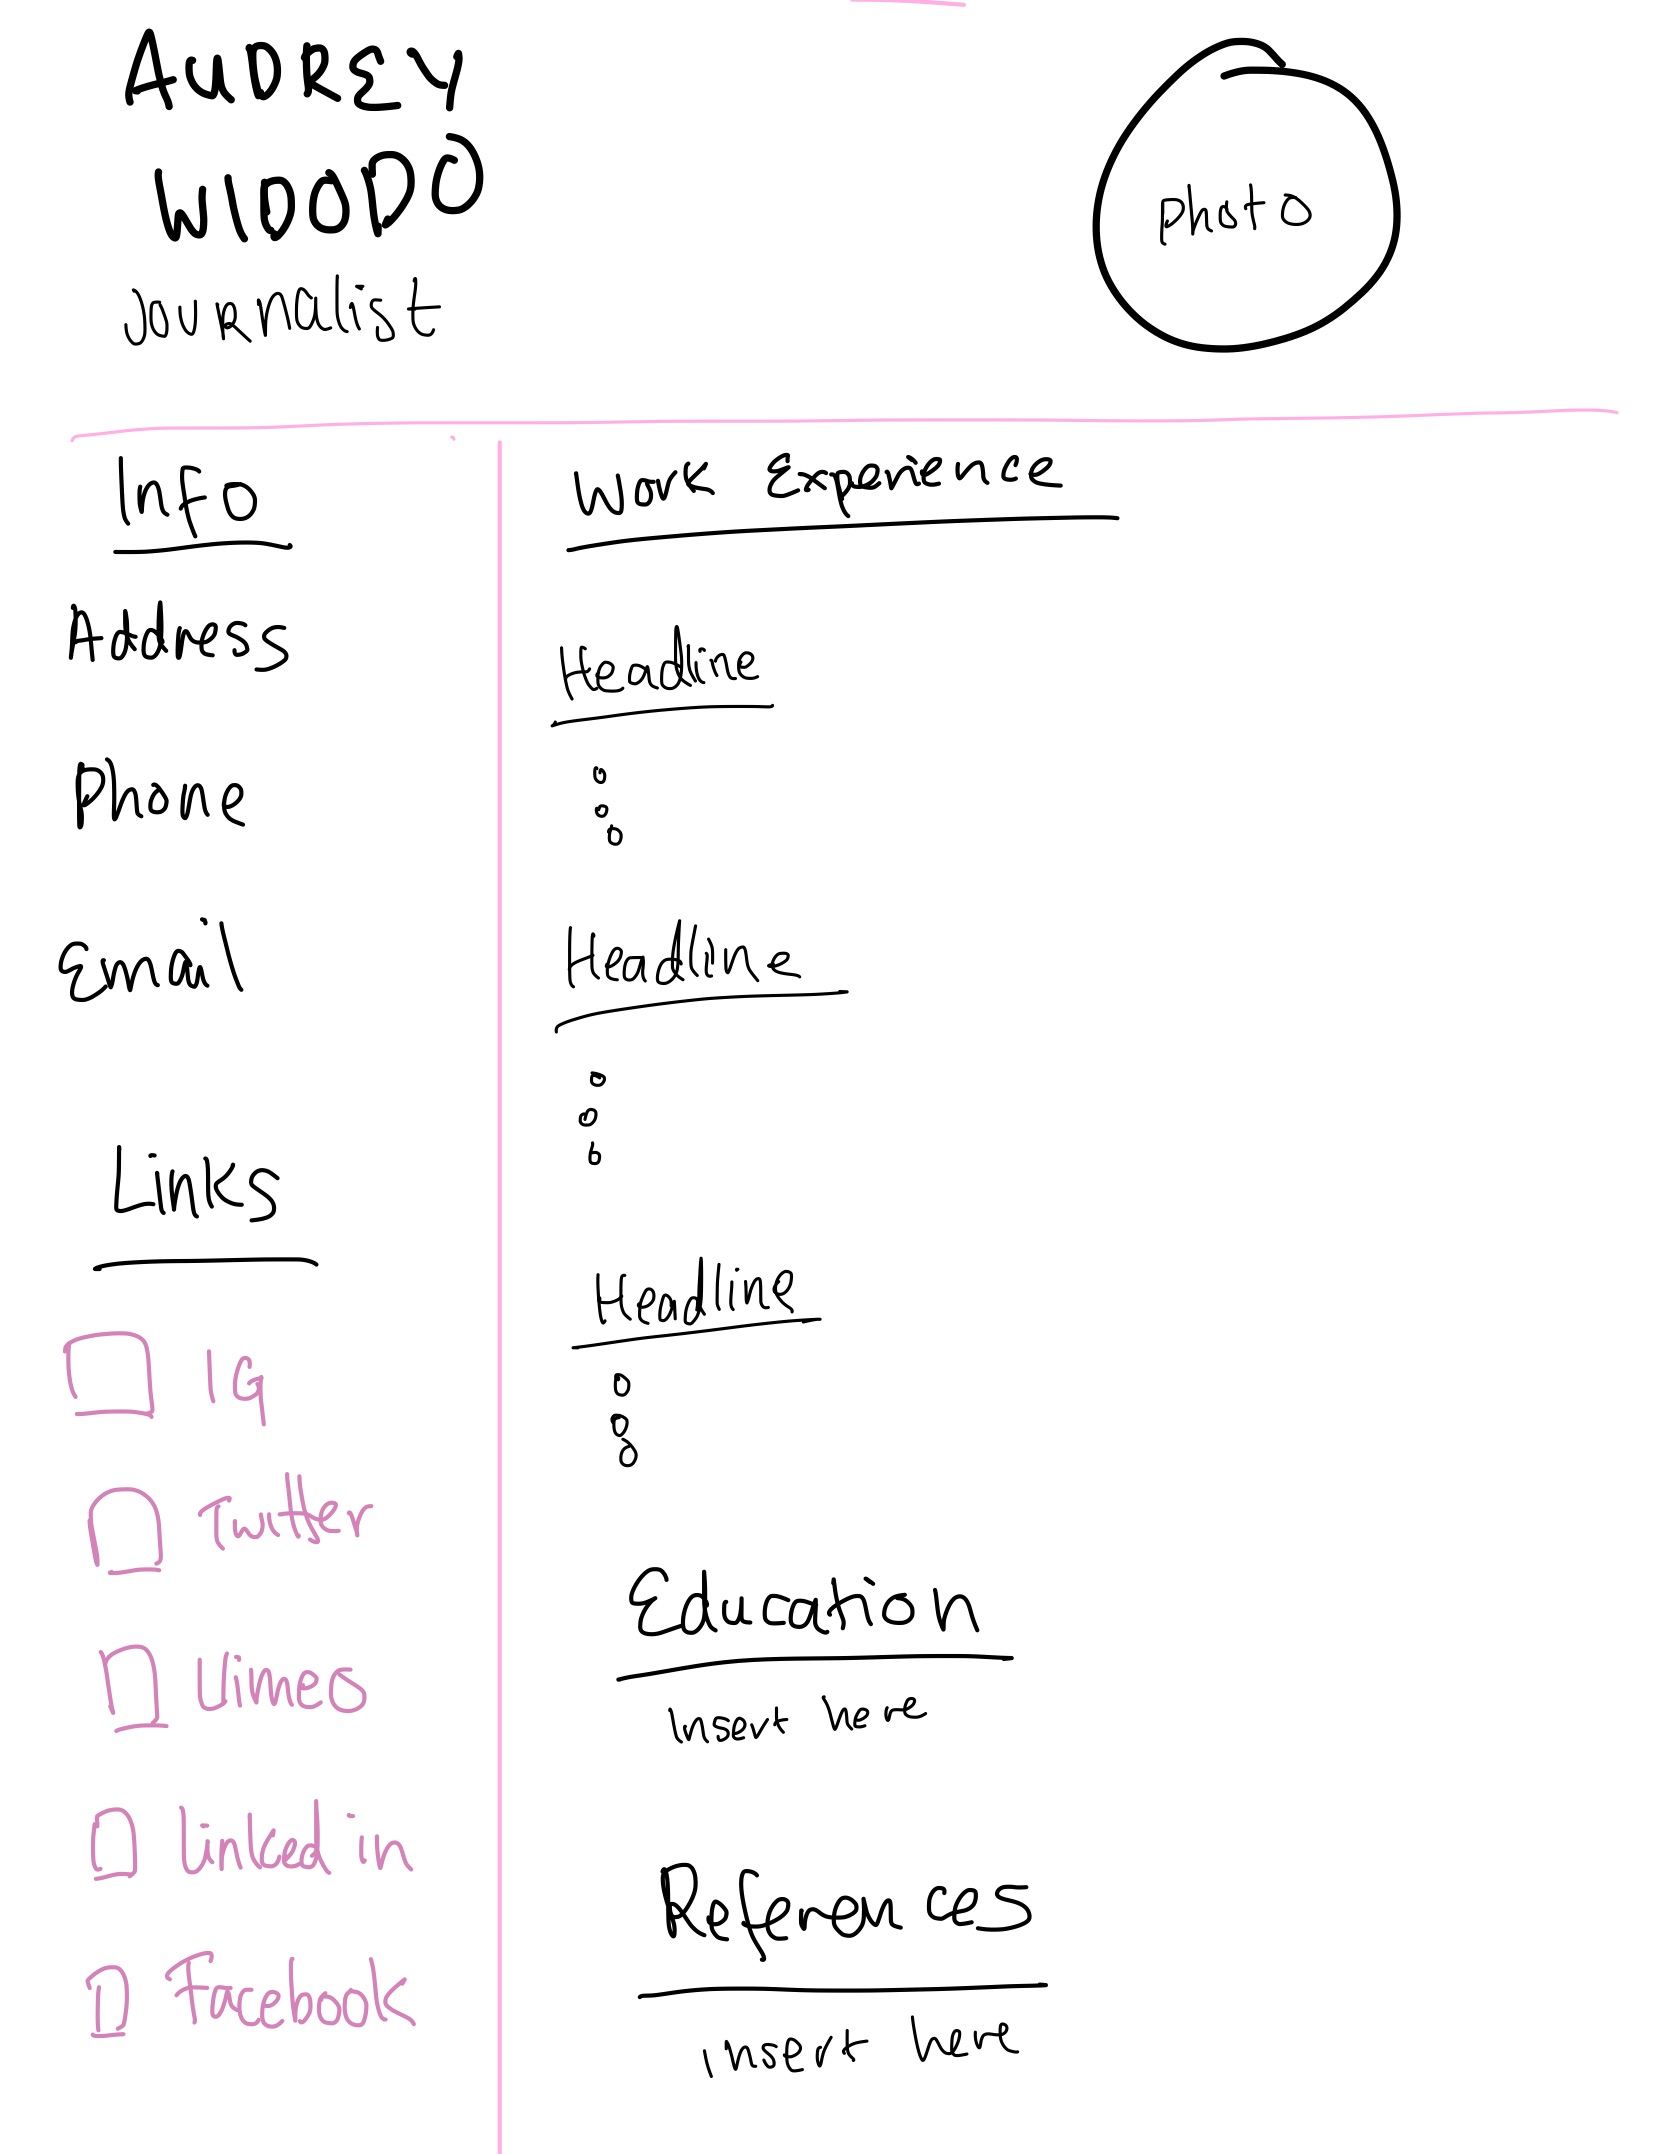 AUDREY
WIDODO
Journalist
photo
Info
Address
Phone
Email
Links
IG
Twitter
Vimeo
linked in
Facebook
Work Experience
Headline
Headline
Headline
Education
Insert here
References
insert here